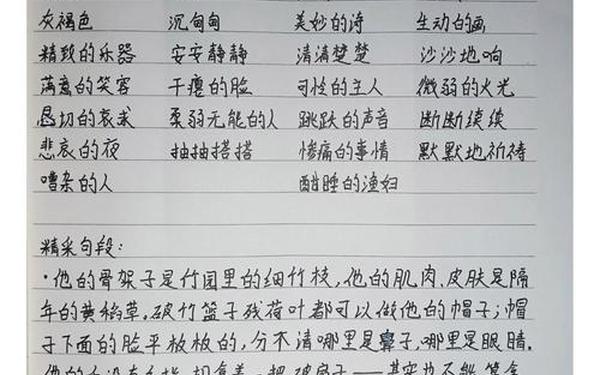 灰褐色 沉甸甸 美妙的诗 生动的画
精致的乐器 安安静静 清清楚楚 沙沙地响
满意的笑容 干瘪的脸 可怜的主人 微弱的火光
恳切的哀求 柔弱无能的人 跳跃的声音 断断续续
悲哀的夜 抽抽搭搭 惨痛的事情 默默地祈祷
嘈杂的人 酣睡的渔妇
精采句段：
·他的骨架子是竹园里的细竹枝，他的肌肉、皮肤是隔
年的黄稻草。破竹篮子残荷叶都可以做他的帽子；帽
子下面的脸平板板的，分不清哪里是鼻子，哪里是眼睛。